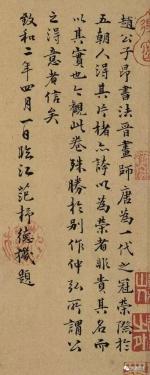 趙公子昂書法晉畫師唐為一代之冠榮際於
五朝人得其片楮亦誇以為榮者非貴其名而
以其實也今觀此卷殊勝於別作仲弘所謂公
之得意者信矣
致和二年四月一日臨江范杼德機題